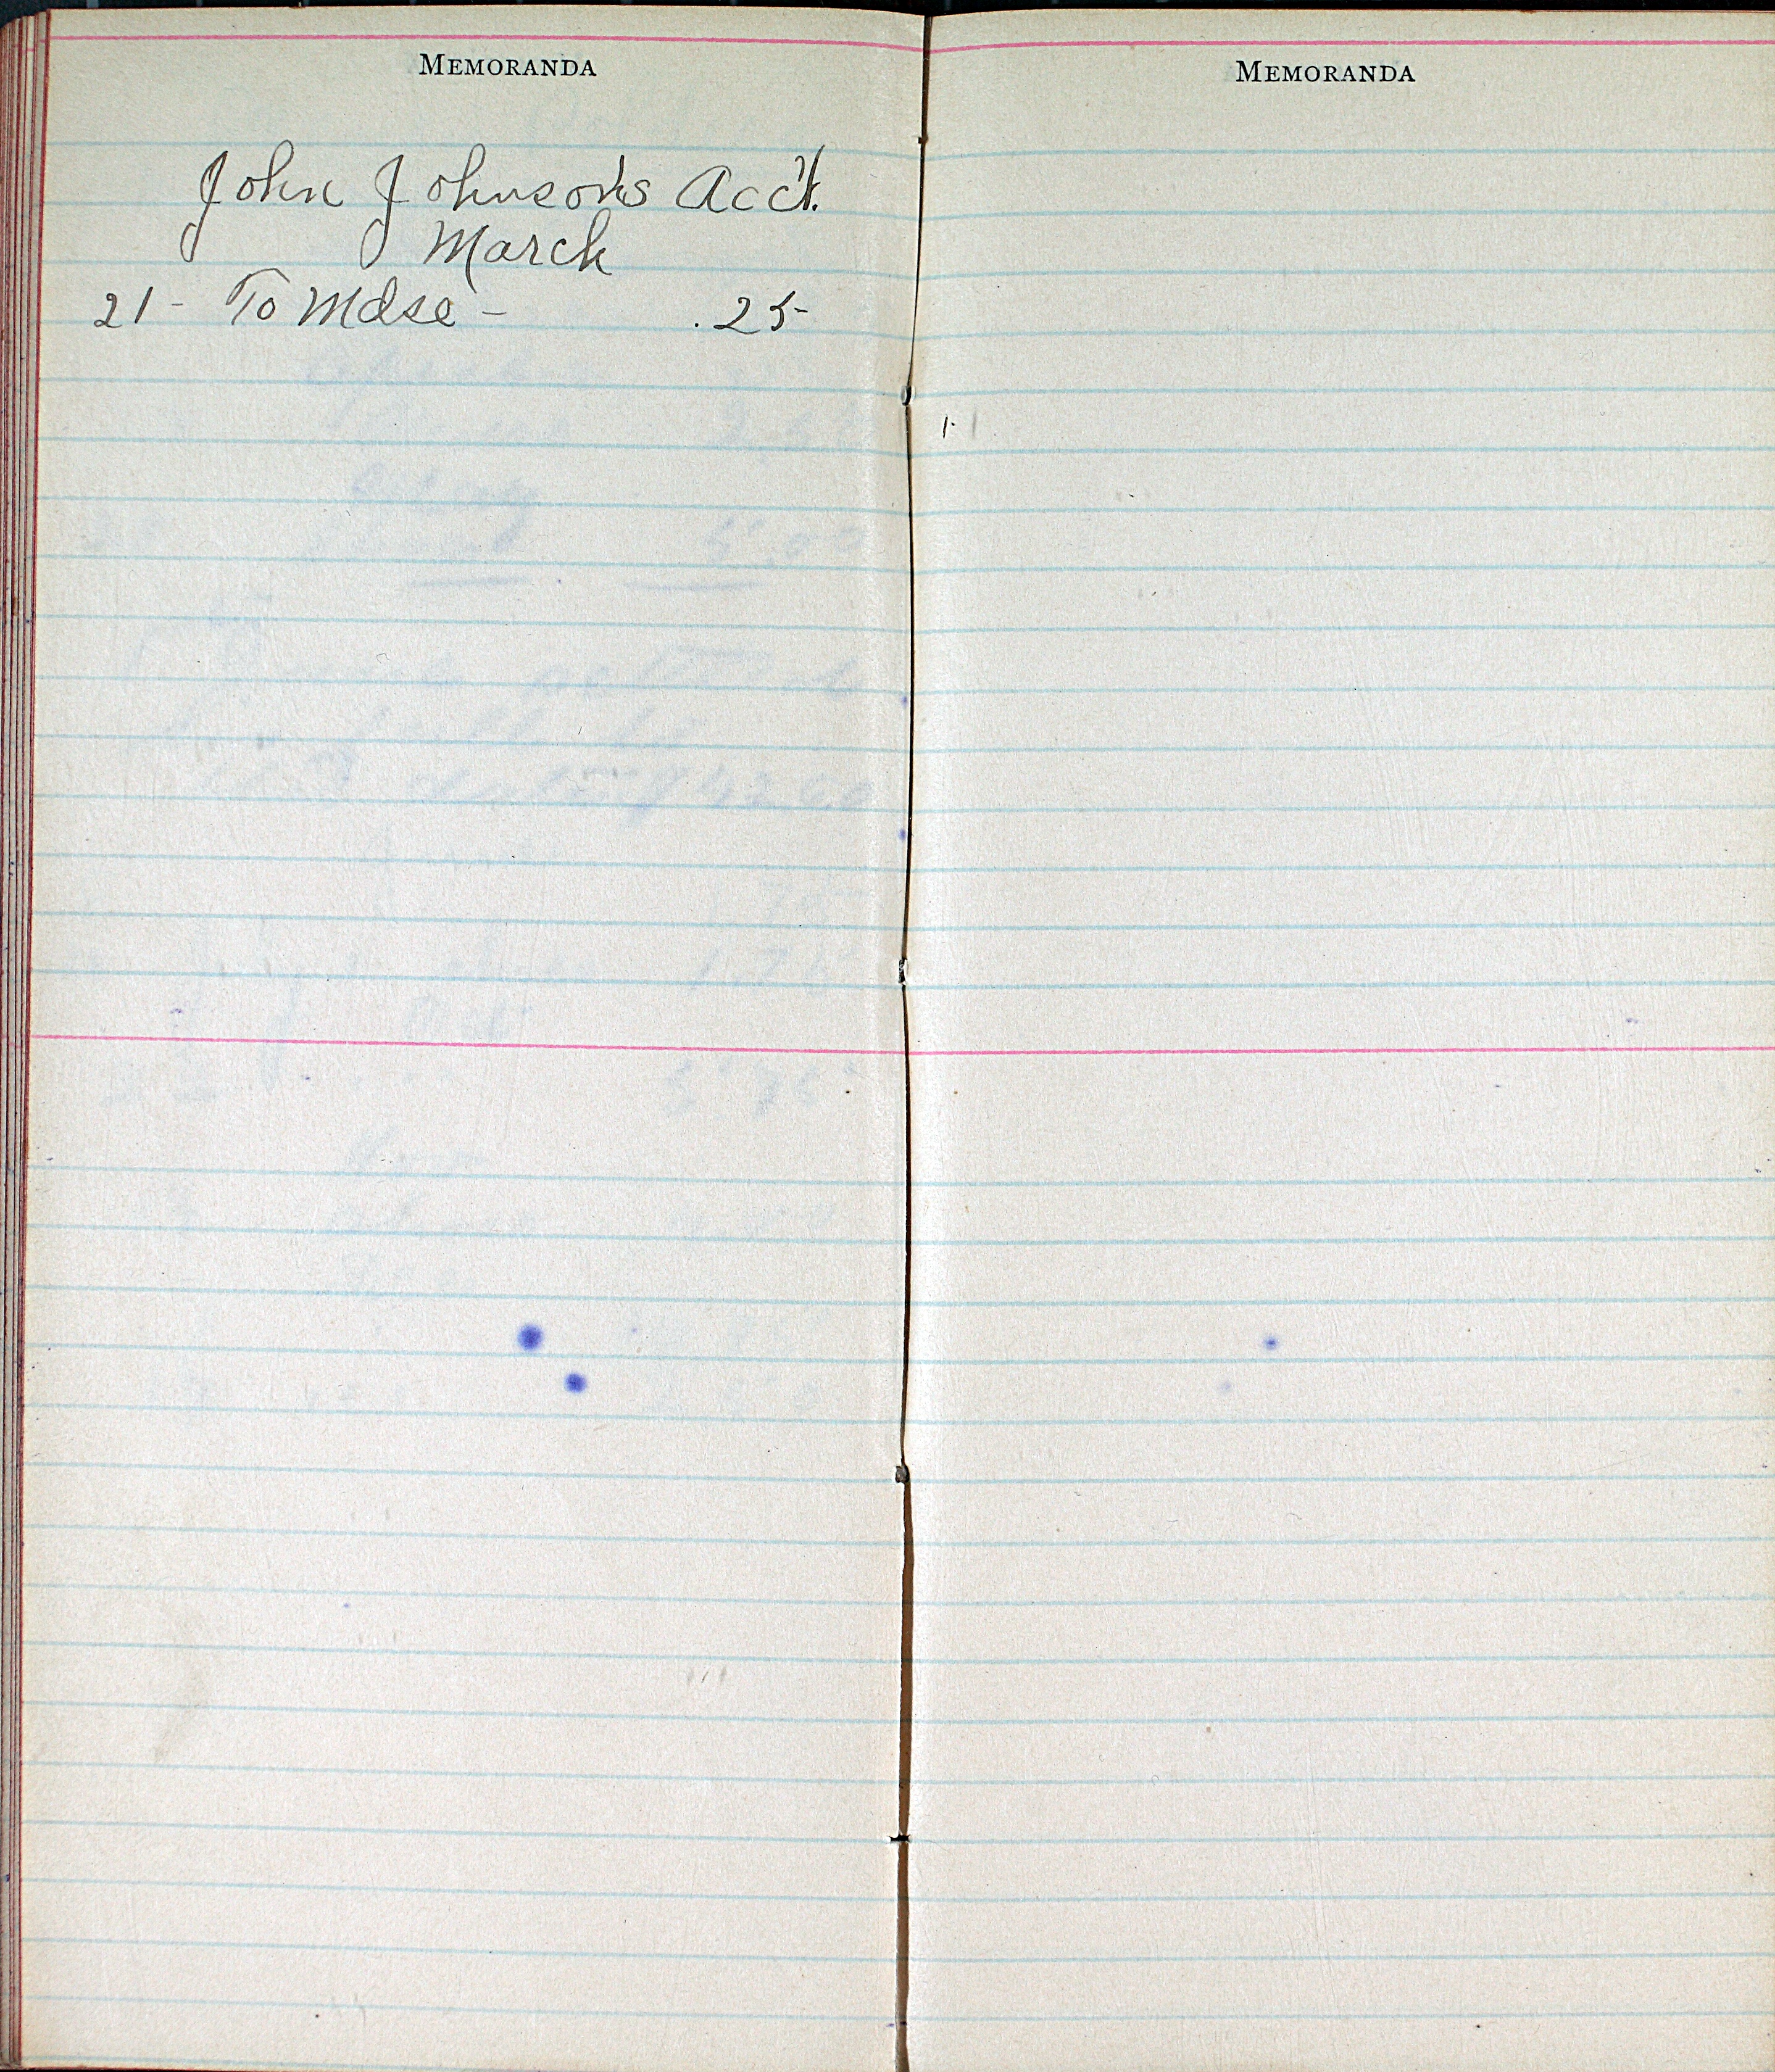 MEMORANDA
John Johnson's Acc't.
March
21- To Mdse - .25
MEMORANDA